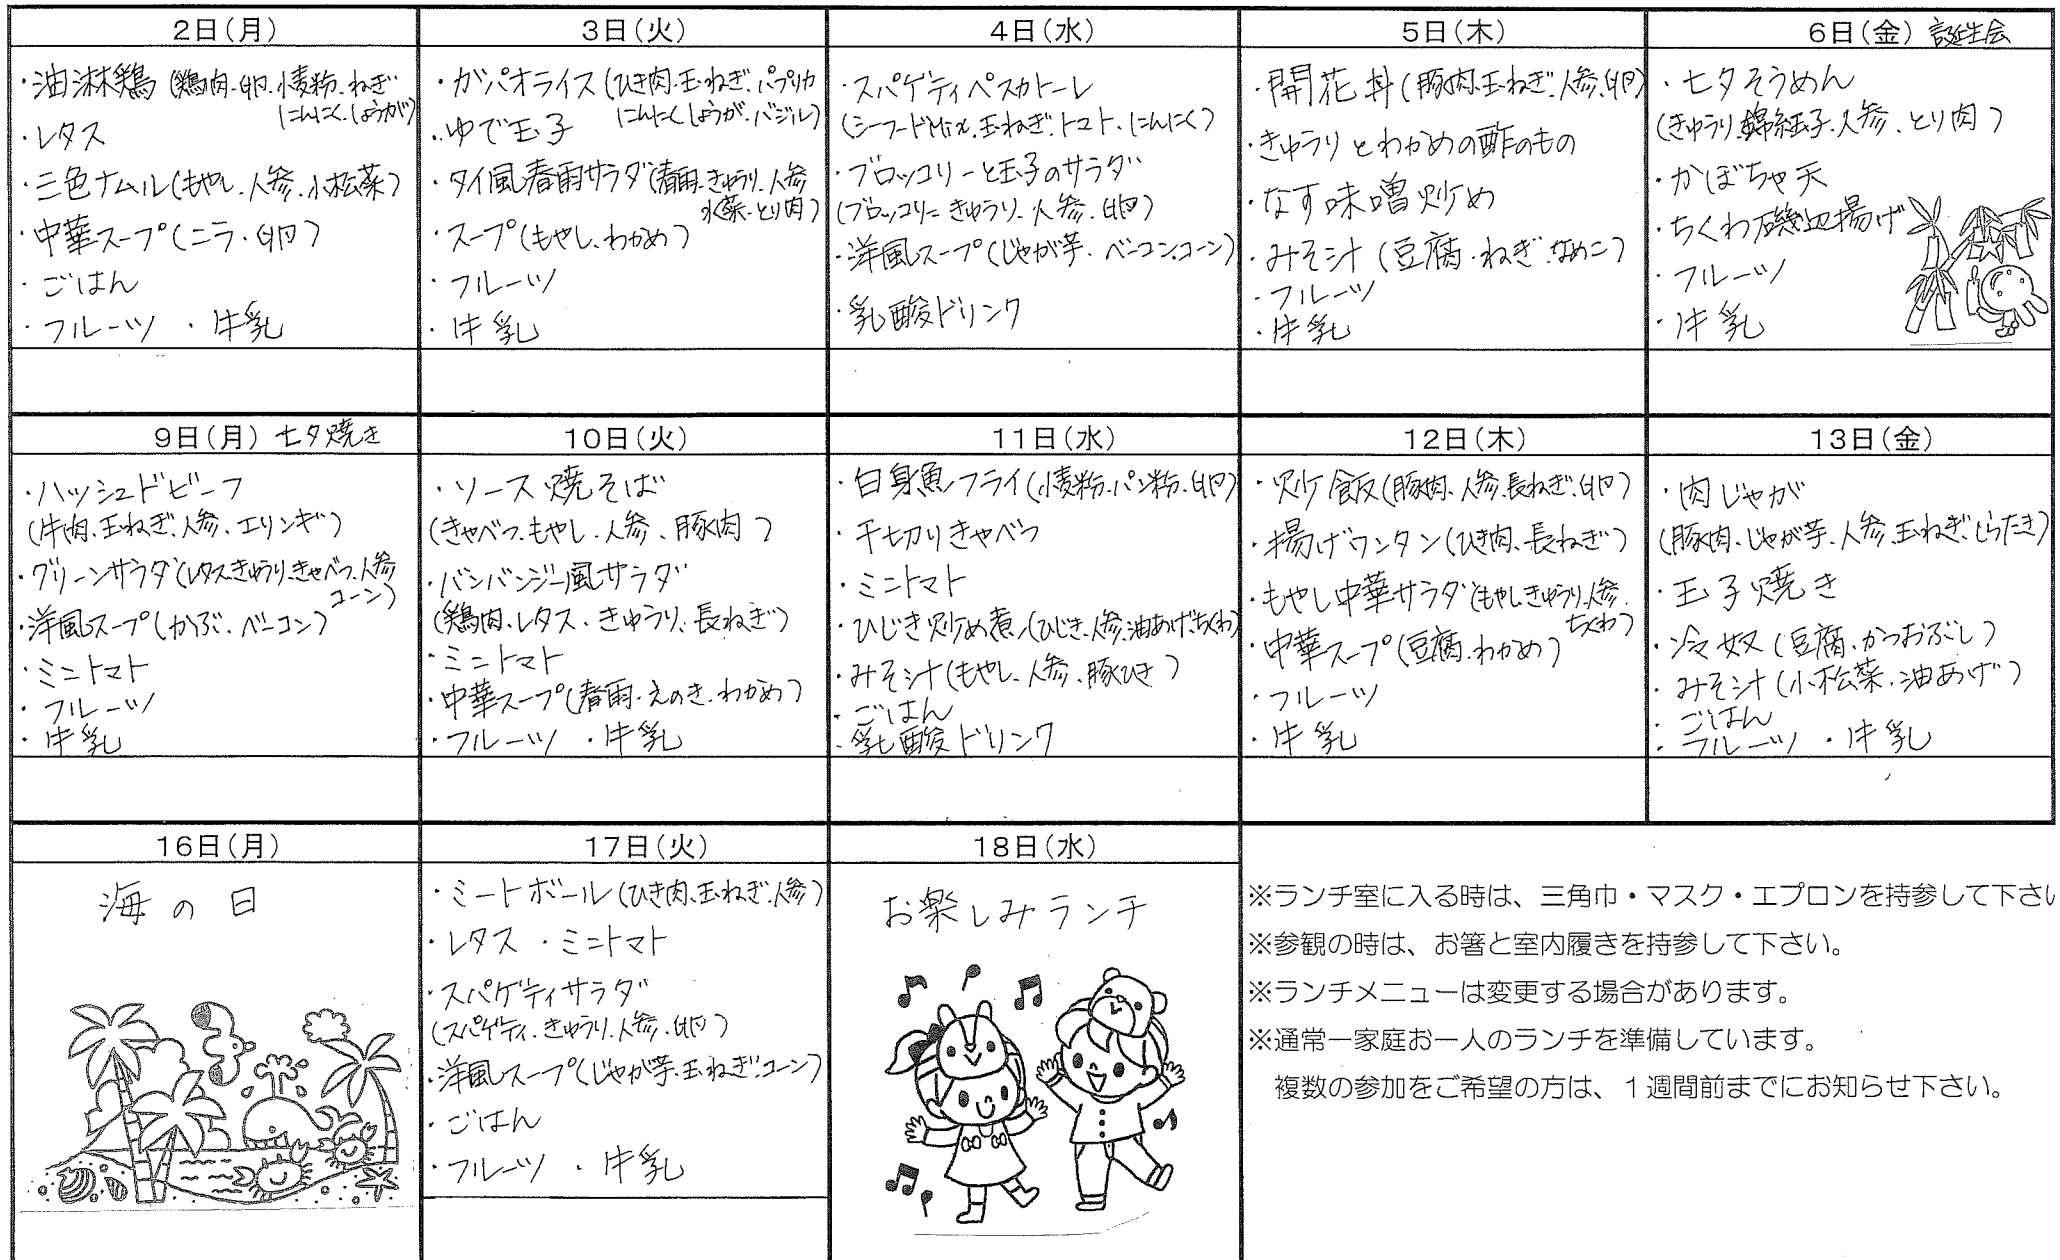 2日(月)
・油淋鶏(鶏肉、卵、小麦粉、ねぎ
にんにく、しょうが)
・レタス
・三色ナムル(もやし、人参、小松菜)
・中華スープ(ニラ・卵)
・ごはん
・フルーツ ・牛乳
3日(火)
・ガパオライス(ひき肉、玉ねぎ、パプリカ
にんにく、しょうが、バジル)
・ゆで玉子
・タイ風春雨サラダ(春雨、きゅうり、人参
水菜、とり肉)
・スープ(もやし、わかめ)
・フルーツ
・牛乳
4日(水)
・スパゲティペスカトーレ
(シーフードMix、玉ねぎ、トマト、にんにく)
・ブロッコリーと玉子のサラダ
(ブロッコリー、きゅうり、人参、卵)
・洋風スープ(じゃが芋、ベーコン、コーン)
・乳酸ドリンク
5日(木)
・開花丼(豚肉、玉ねぎ、人参、卵)
・きゅうりとわかめの酢のもの
・なす味噌炒め
・みそ汁(豆腐・ねぎ・なめこ)
・フルーツ
・牛乳
6日(金) 誕生会
・七夕そうめん
(きゅうり、錦糸玉子、人参、とり肉)
・かぼちゃ天
・ちくわ磯辺揚げ
・フルーツ
・牛乳
9日(月) 七夕焼き
・ハッシュドビーフ
(牛肉、玉ねぎ、人参、エリンギ)
・グリーンサラダ(レタス、きゅうり、きゃべつ、人参
コーン)
・洋風スープ(かぶ、ベーコン)
・ミニトマト
・フルーツ
・牛乳
10日(火)
・ソース焼そば
(きゃべつ、もやし、人参、豚肉)
・バンバンジー風サラダ
(鶏肉、レタス、きゅうり、長ねぎ)
・ミニトマト
・中華スープ(春雨・えのき・わかめ)
・フルーツ ・牛乳
11日(水)
・白身魚フライ(小麦粉、パン粉、卵)
・千切りきゃべつ
・ミニトマト
・ひじき炒め煮(ひじき、人参、油あげ、ちくわ)
・みそ汁(もやし、人参、豚ひき)
・ごはん
・乳酸ドリンク
12日(木)
・炒飯(豚肉、人参、長ねぎ、卵)
・揚げワンタン(ひき肉、長ねぎ)
・もやし中華サラダ(もやし、きゅうり、人参、
ちくわ)
・中華スープ(豆腐、わかめ)
・フルーツ
・牛乳
13日(金)
・肉じゃが
(豚肉、じゃが芋、人参、玉ねぎ、しらたき)
・玉子焼き
・冷奴(豆腐・かつおぶし)
・みそ汁(小松菜・油あげ)
・ごはん
・フルーツ ・牛乳
16日(月)
海の日
17日(火)
・ミートボール(ひき肉、玉ねぎ、人参)
・レタス ・ミニトマト
・スパゲティサラダ
(スパゲティ、きゅうり、人参、卵)
・洋風スープ(じゃが芋、玉ねぎ、コーン)
・ごはん
・フルーツ ・牛乳
18日(水)
お楽しみランチ
※ランチ室に入る時は、三角巾・マスク・エプロンを持参して下さい
※参観の時は、お箸と室内履きを持参して下さい。
※ランチメニューは変更する場合があります。
※通常一家庭お一人のランチを準備しています。
複数の参加をご希望の方は、1週間前までにお知らせ下さい。